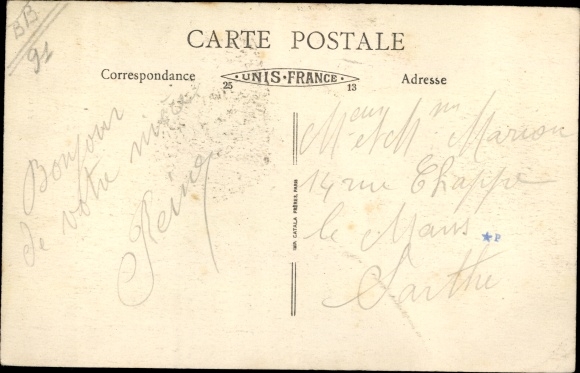 BB
91
CARTE POSTALE
Correspondance
UNIS-FRANCE
25
13
Adresse
Bonjour
de votre
Reine
Mr et Mme Marion
14 rue Chappe
le Mans
Sarthe
IMP. CATALA FRÈRES, PARIS
P